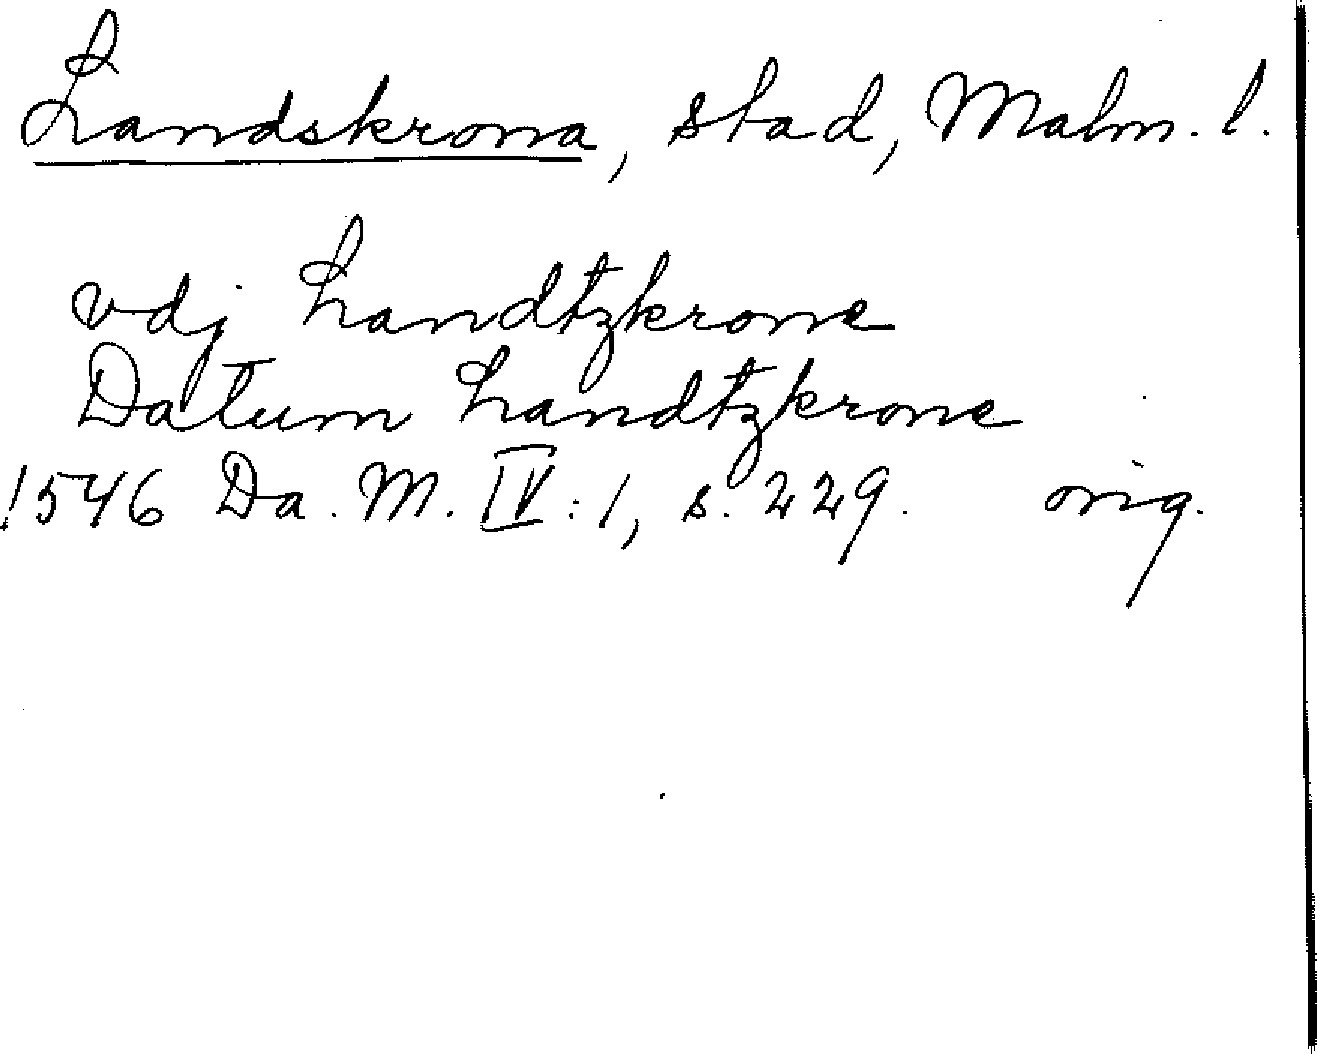 Landskrona, stad, Malm. l.
vdj Landtzkrone
Datum Landtzkrone
1546 Da. M. IV:1, s. 229. orig.